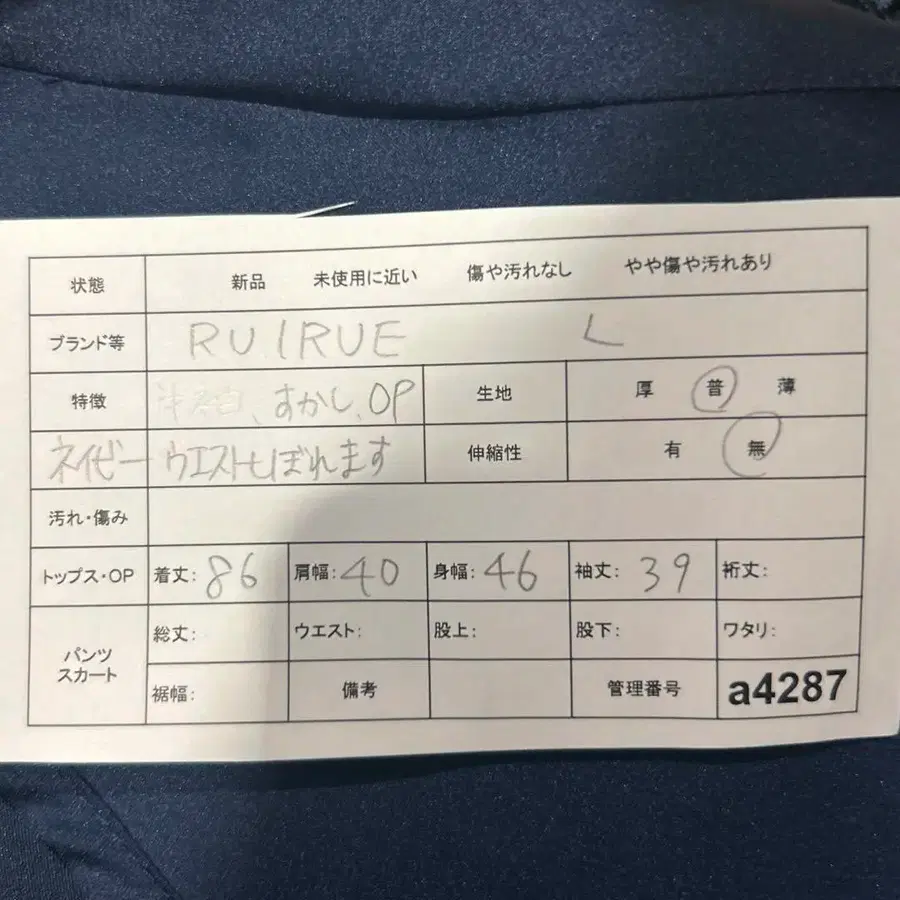 状態 新品 未使用に近い 傷や汚れなし やや傷や汚れあり
ブランド等 RUIRUE L
特徴 、すかし、OP 生地 厚 普 薄
ネイビー ウエストしぼれます 伸縮性 有 無
汚れ・傷み
トップス・OP 着丈:86 肩幅:40 身幅:46 袖丈:39 裄丈:
パンツ スカート 総丈: ウエスト: 股上: 股下: ワタリ:
裾幅: 備考 管理番号 a4287